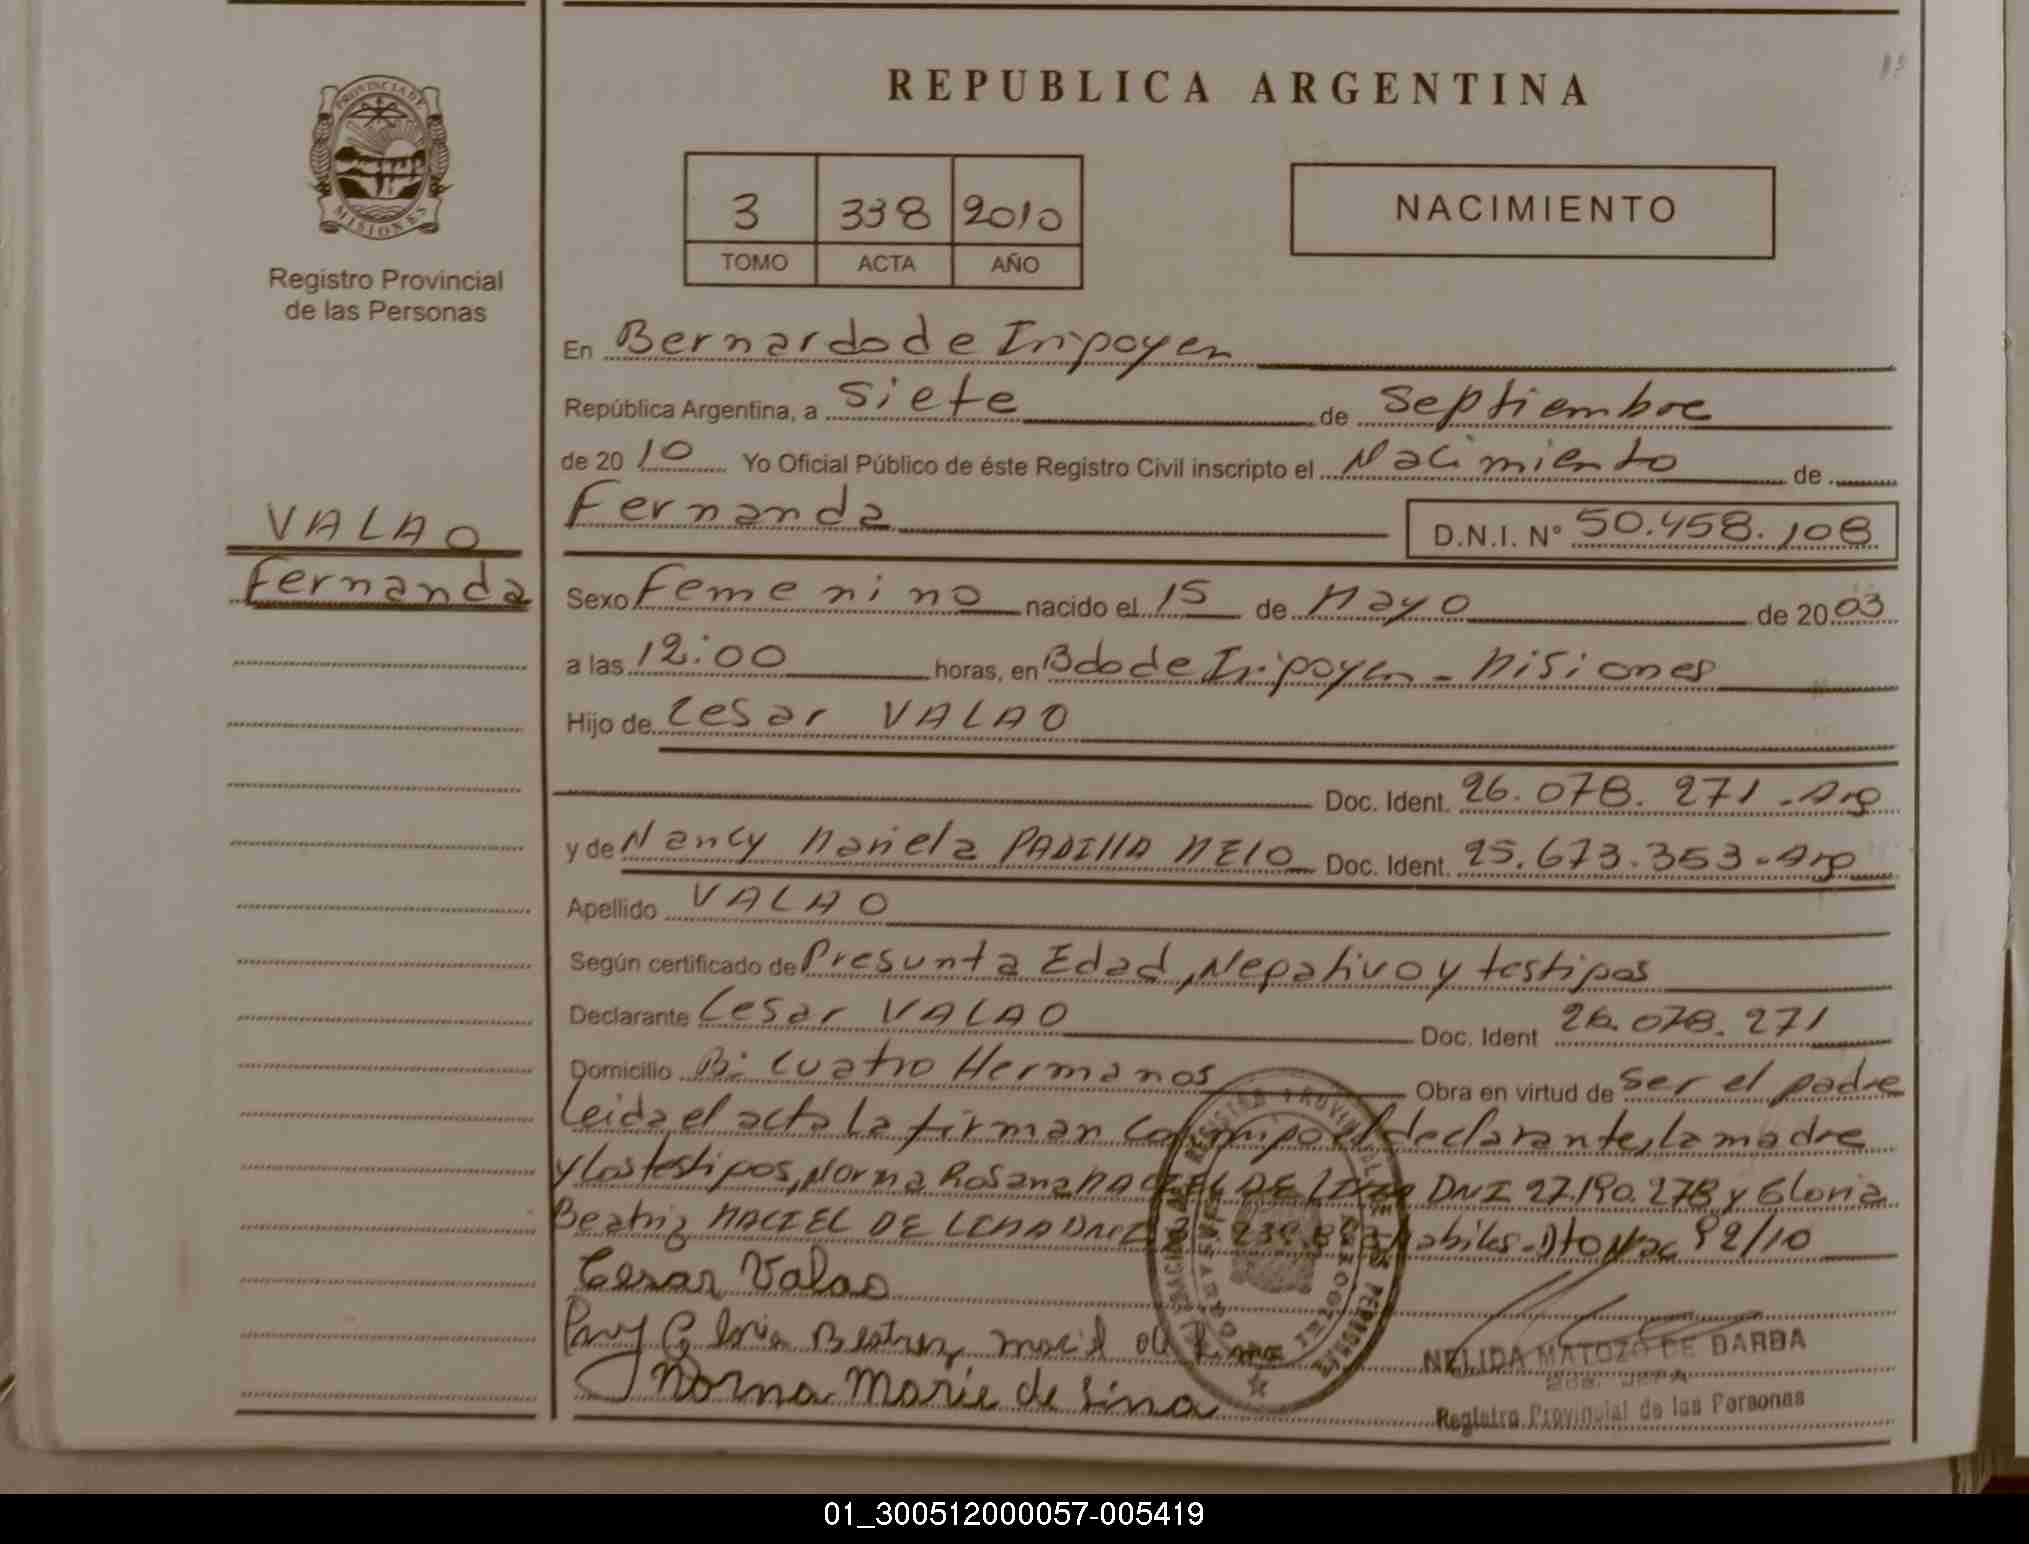 REPUBLICA ARGENTINA
PROVINCIA DE
MISIONES
Registro Provincial
de las Personas
3 338 2010
TOMO ACTA AÑO
NACIMIENTO
VALAO
Fernanda
En Bernardo de Irigoyen
República Argentina, a Siete de Septiembre
de 2010 Yo Oficial Público de éste Registro Civil inscripto el Nacimiento de
Fernanda D.N.I. N° 50.458.108
Sexo Femenino nacido el 15 de Mayo de 2003
a las 12:00 horas, en Bdo de Irigoyen - Misiones
Hijo de Cesar VALAO
Doc. Ident. 26.078.271 - Arg
y de Nancy Mariela PADILLA MELO Doc. Ident. 25.673.353 - Arg
Apellido VALAO
Según certificado de Presunta Edad, Negativo y testigos
Declarante Cesar VALAO Doc. Ident 26.078.271
Domicilio Bº Cuatro Hermanos Obra en virtud de Ser el padre
Leida el acta la firman conmigo el declarante, la madre
y los testigos, Norma Rosana MACIEL DE LIMA DNI 27.190.278 y Gloria
Beatriz MACIEL DE LIMA DNI habiles - Dto Nac 92/10
Cesar Valao
Gloria Beatriz maciel de Lima
Norma Marie de Lima
NELIDA MATOZO DE DARBA
Registro Provincial de las Personas
01_300512000057-005419